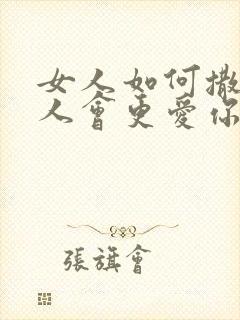 女人如何撒
人會更愛你
張旗會